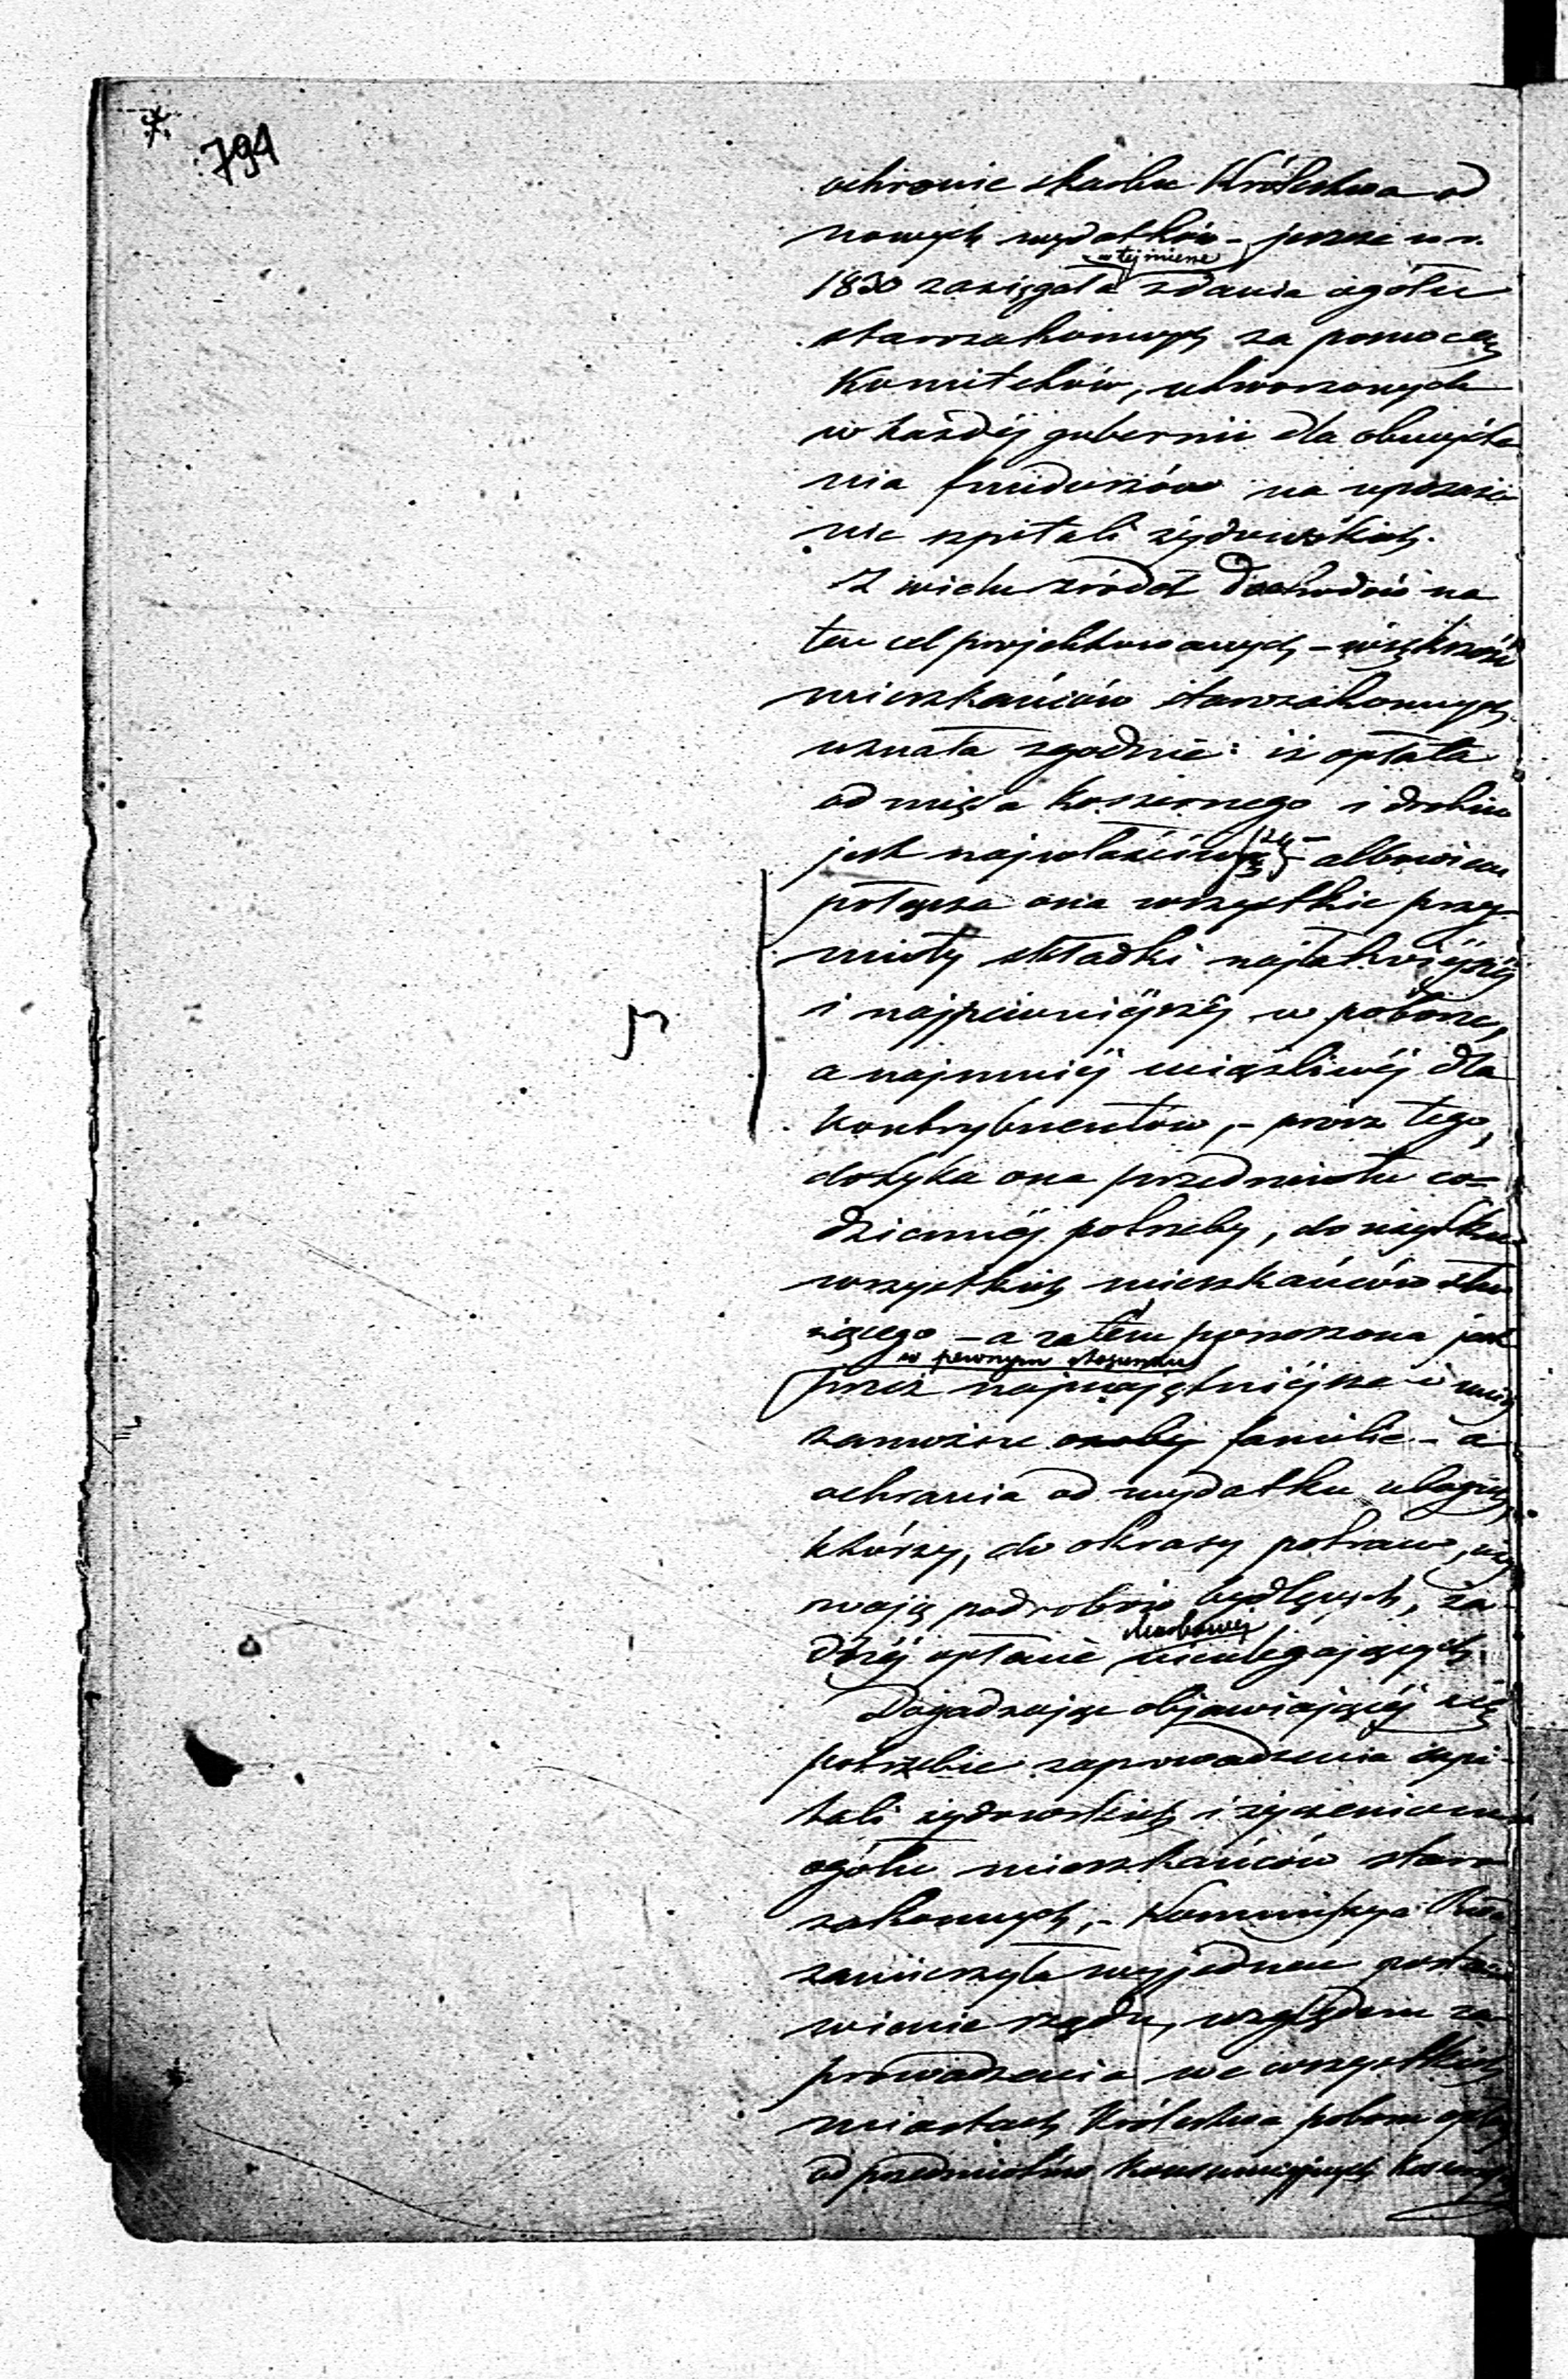 794
ochronić skarbu Królestwa od
nowych wydatków - jeszcze w r.
w tej mierze
1830 zasięgała zdania ogółu
starozakonnych za pomocą
Komitetów, utworzonych
w każdej gubernii dla obmyśle
nia funduszów na uposaże
nie szpitali żydowskich.
Z wielu źródeł dochodów na
ten cel projektowanych - większość
mieszkańców starozakonnych
uznała zgodnie: iż opłata
od mięsa koszernego i drobiu
jest najwłaściwszą - albowiem
połącza ona wszystkie przy-
mioty składki najłatwiejszej
i najpewniejszej w poborze,
a najmniej uciążliwej dla
kontrybuentów, - prócz tego,
dotyka ona przedmiotu co=
dziennej potrzeby, do użytku
wszystkich mieszkańców słu
żącego - a zatem ponoszona jest
w pewnym stosunku
przez najmajętniejsze i mniej
zamożne osoby familie - a
ochrania od wydatku ubogich,
którzy, do okrasy potraw, uży
wają podrobów bydlęcych, ża-
skarbowej
dnej opłacie nieulegających.
Dogadzając objawiającej się
potrzebie zaprowadzenia szpi-
tali żydowskich i życzeniom
ogółu mieszkańców staro
zakonnych, - Kommissya Rzą
zamierzyła wyjednać postano
wienie rządu, względem za
prowadzenia we wszystkich
miastach Królestwa poboru opłaty
od przedmiotów konsumcyjnych koszernych